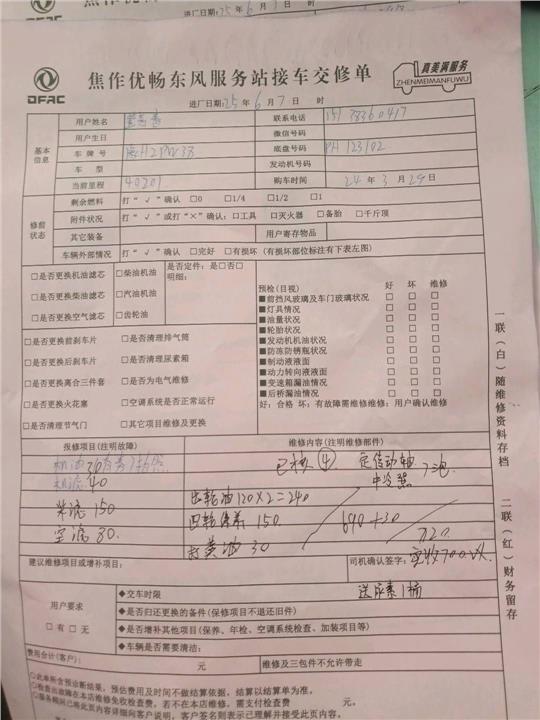 DFAC
焦作优畅东风服务站接车交修单
真美满服务
ZHENMEIMANFUWU
进厂日期:25 年 6 月 7 日 时
基本信息
用户姓名
联系电话
用户生日
微信号码
车 牌 号
底盘号码 PH123102
车 型
发动机号码
当前里程 40201
购车时间 24 年 3 月 29 日
修前状态
剩余燃料 打“√”确认 □0 □1/4 □1/2 □1
附件状况 打“√”或打“×”确认：□工具 □灭火器 □备胎 □千斤顶
其它装备
用户寄存物品
车辆外部情况 打“√”确认 □完好 □有损坏 (有损坏部位标注有下表左图)
□是否更换机油滤芯 □柴油机油
□是否更换柴油滤芯 □汽油机油
□是否更换空气滤芯 □齿轮油
是否定件：是□否□
明细:
□是否更换前刹车片 □是否清理排气筒
□是否更换后刹车片 □是否清理尿素箱
□是否更换离合三件套 □是否为电气维修
□是否更换火花塞 □空调系统是否正常运行
□是否清理节气门 □其它项目维修及更换
预检(目视) 好 坏 维修
■前挡风玻璃及车门玻璃状况 □ □ □
■灯具情况 □ □ □
■油量状况 □ □ □
■轮胎状况 □ □ □
■发动机机油状况 □ □ □
■防冻防锈瓶状况 □ □ □
■制动液液面 □ □ □
■动力转向液液面 □ □ □
■变速箱漏油情况 □ □ □
■后桥漏油情况 □ □ □
好：合格 坏：有故障需维修维修：用户确认维修
报修项目(注明故障)
维修内容(注明维修部件)
机滤 40
柴滤 150
空滤 80
齿轮油120×2=240
150
打黄油 30
690+30
720
建议维修项目或增补项目:
司机确认签字:
送尿素1桶
用户要求
□ 有 □ 无
◆交车时限
◆是否归还更换的备件(保修项目不退还旧件)
◆是否增补其他项目(保养、年检、空调系统检查、加装项目等)
◆车辆是否需要清洁:
费用合计(客户): 元
维修及三包件不允许带走
○此单所含预诊断结果，预估费用及时间不做结算依据，结算以结算单为准。
○检查出故障在本店维修免收检查费，若不在本店维修，需支付检查费 元。
○服务顾问已将此页内容详细向客户说明，客户签名则表示已理解并接受此页内容。
一联(白)随维修资料存档
二联(红)财务留存